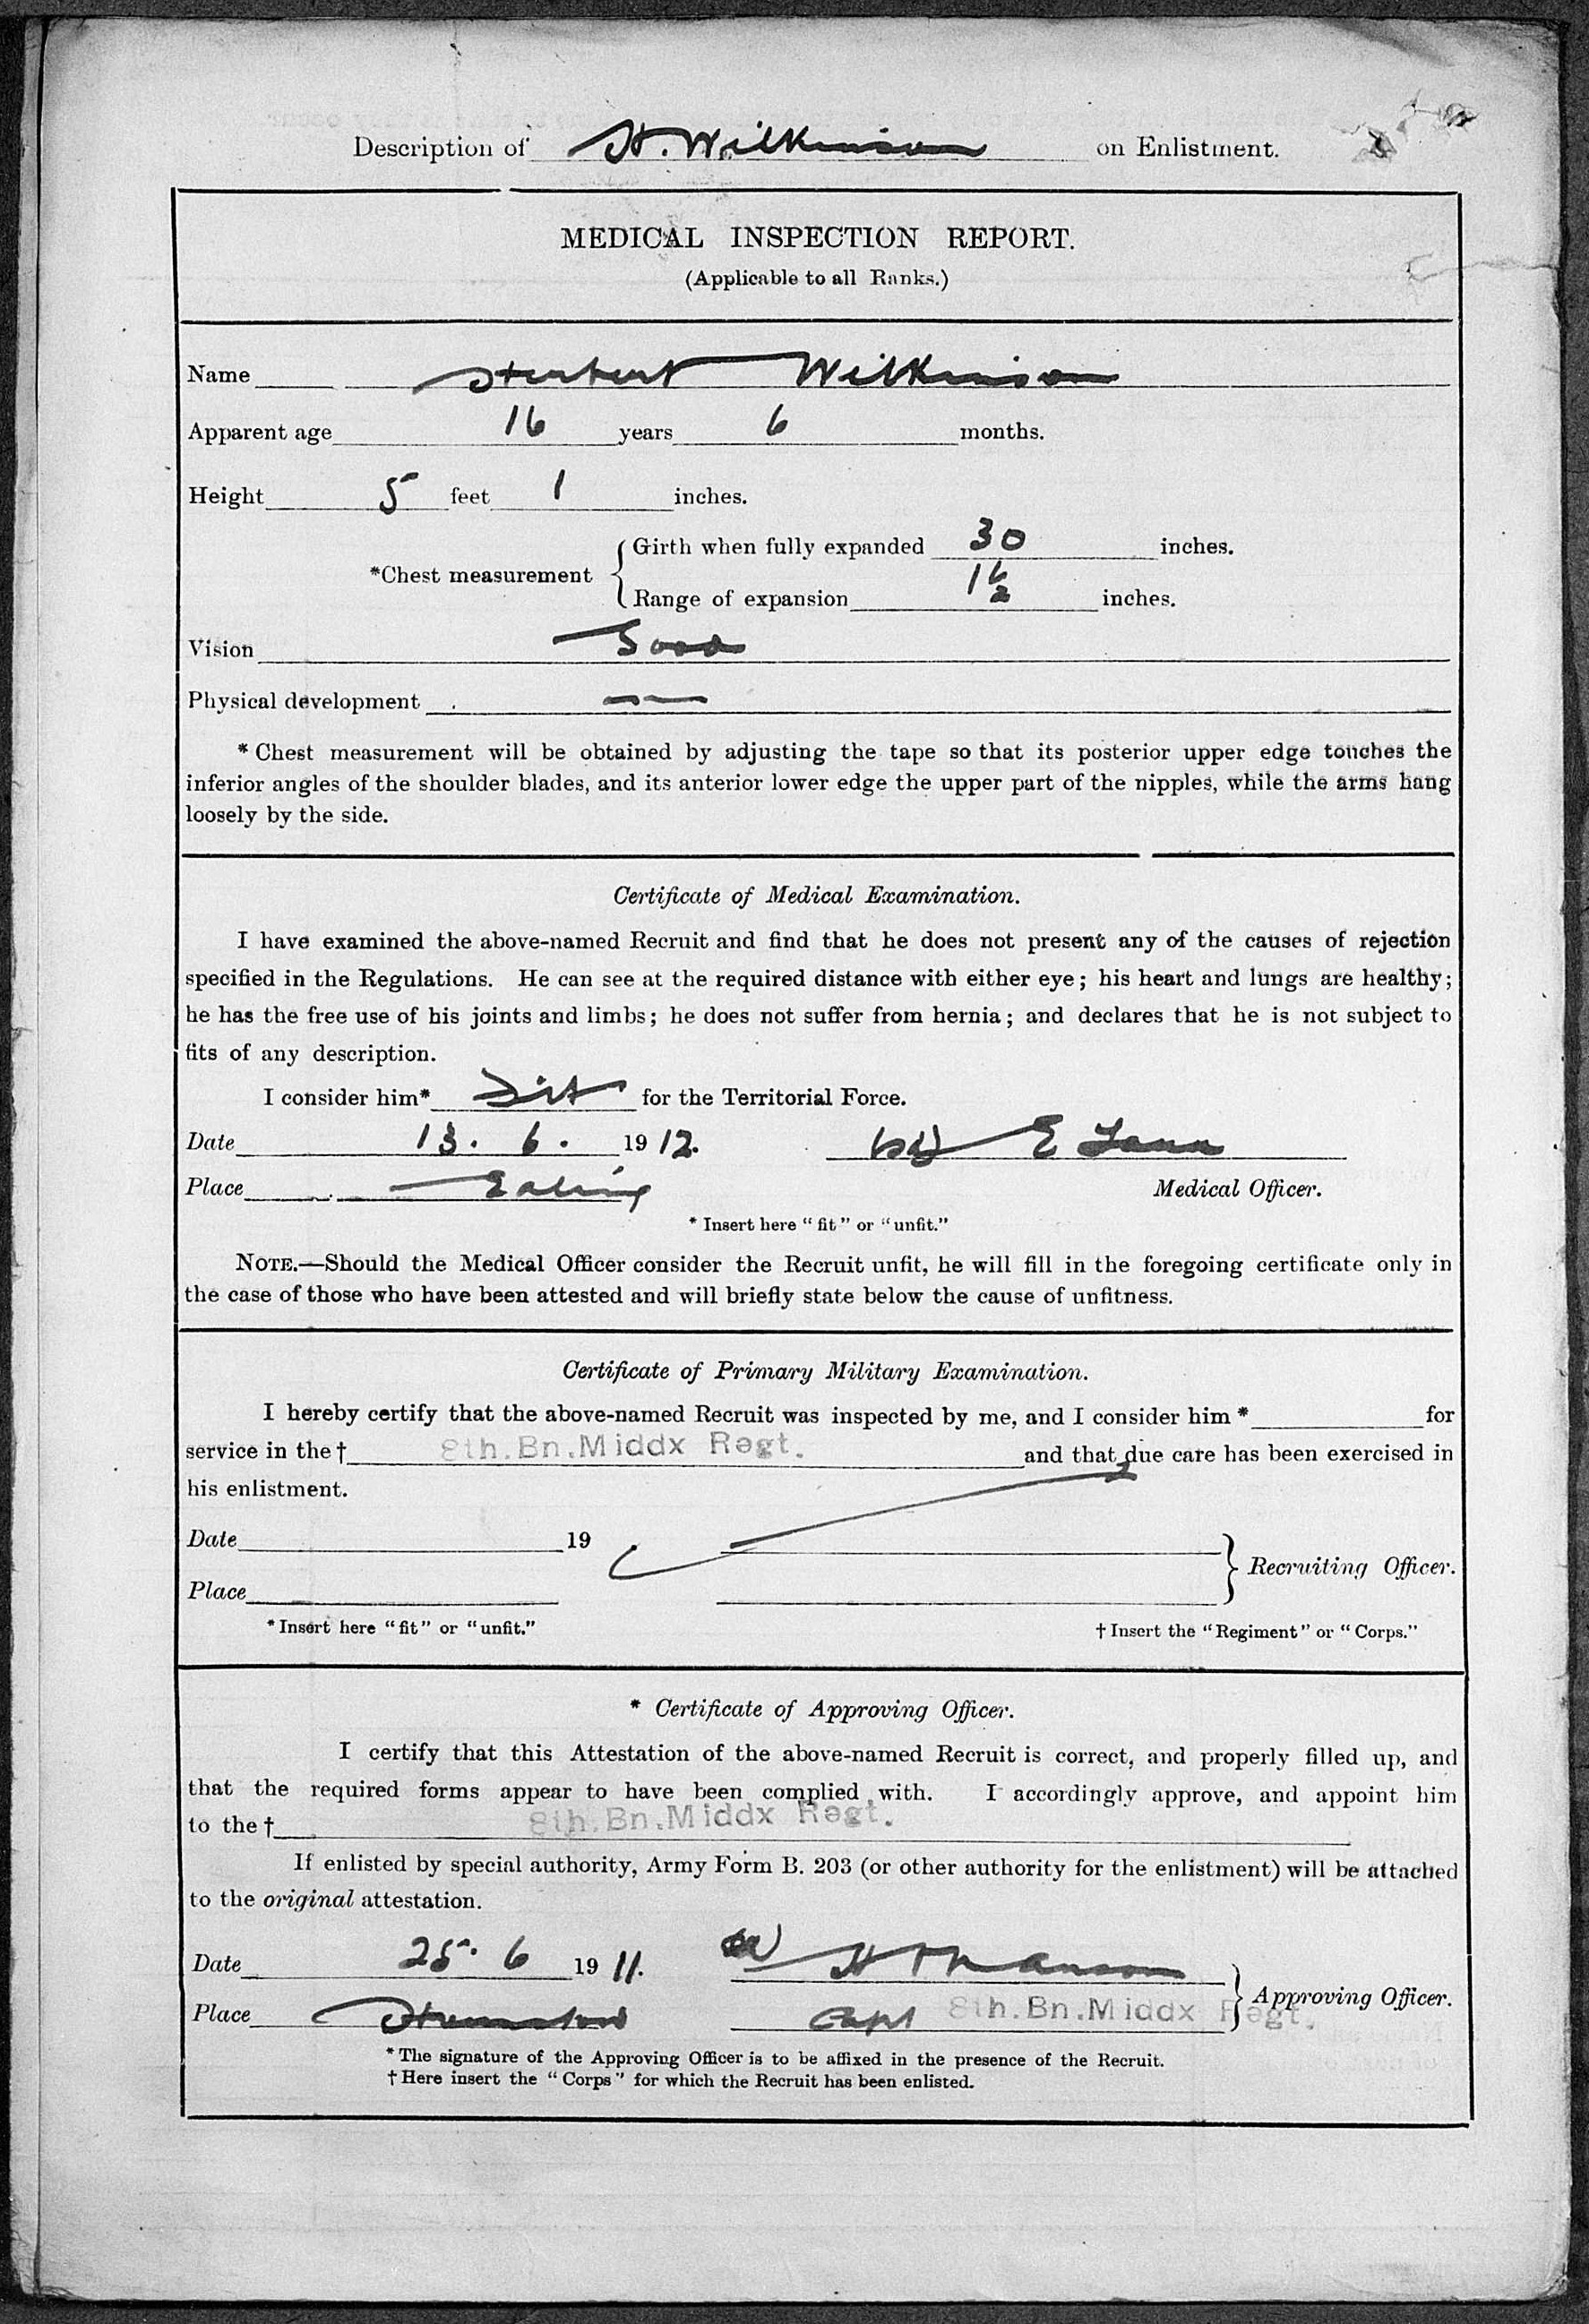 Description of H. Wilkinson on Enlistment.
MEDICAL INSPECTION REPORT.
(Applicable to all Ranks.)
Name Herbert Wilkinson
Apparent age 16 years 6 months.
Height 5 feet 1 inches.
*Chest measurement { Girth when fully expanded 30 inches.
Range of expansion 1½ inches.
Vision Good
Physical development
* Chest measurement will be obtained by adjusting the tape so that its posterior upper edge touches the
inferior angles of the shoulder blades, and its anterior lower edge the upper part of the nipples, while the arms hang
loosely by the side.
Certificate of Medical Examination.
I have examined the above-named Recruit and find that he does not present any of the causes of rejection
specified in the Regulations. He can see at the required distance with either eye; his heart and lungs are healthy;
he has the free use of his joints and limbs; he does not suffer from hernia; and declares that he is not subject to
fits of any description.
I consider him* Fit for the Territorial Force.
Date 13. 6. 1912. E
Place Ealing Medical Officer.
* Insert here "fit" or "unfit."
NOTE.—Should the Medical Officer consider the Recruit unfit, he will fill in the foregoing certificate only in
the case of those who have been attested and will briefly state below the cause of unfitness.
Certificate of Primary Military Examination.
I hereby certify that the above-named Recruit was inspected by me, and I consider him * for
service in the † 8th. Bn. Middx Regt. and that due care has been exercised in
his enlistment.
Date 19
Place } Recruiting Officer.
* Insert here "fit" or "unfit." † Insert the "Regiment" or "Corps."
* Certificate of Approving Officer.
I certify that this Attestation of the above-named Recruit is correct, and properly filled up, and
that the required forms appear to have been complied with. I accordingly approve, and appoint him
to the † 8th. Bn. Middx Regt.
If enlisted by special authority, Army Form B. 203 (or other authority for the enlistment) will be attached
to the original attestation.
Date 25. 6 1911.
Place Capt 8th. Bn. Middx Regt. } Approving Officer.
* The signature of the Approving Officer is to be affixed in the presence of the Recruit.
† Here insert the "Corps" for which the Recruit has been enlisted.